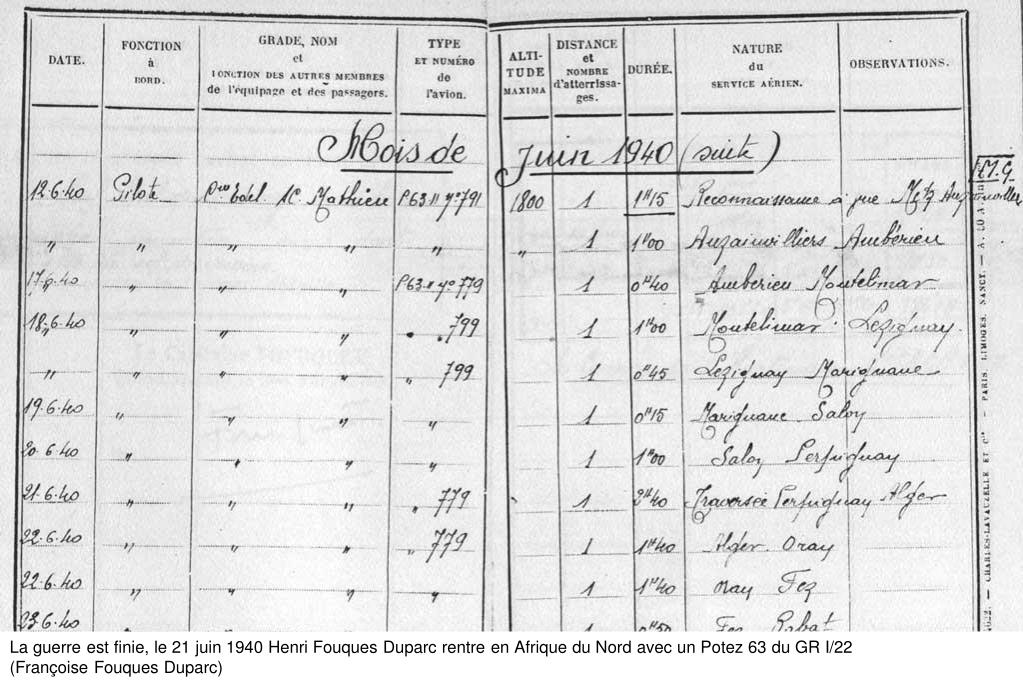 DATE. FONCTION à BORD. GRADE, NOM et FONCTION DES AUTRES MEMBRES de l'équipage et des passagers. TYPE ET NUMÉRO de l'avion. ALTITUDE MAXIMA DISTANCE et NOMBRE d'atterrissages. DURÉE. NATURE du SERVICE AÉRIEN. OBSERVATIONS.
Mois de Juin 1940 (suite)
M.G
12.6.40 Pilote Mathieu P.63.II n°791 1800 1 1h15 Reconnaissance
" " " " " " 1 1h00 Auzainvilliers Ambérieu
17.6.40 " " " P.63.II n°779 1 0h40 Ambérieu Montelimar
18.6.40 " " " " 799 1 1h00 Montelimar Lezignan
" " " " " 799 1 0h45 Lezignan Marignane
19.6.40 " " " " 1 0h15 Marignane Salon
20.6.40 " " " " 1 1h00 Salon Perpignan
21.6.40 " " " " 779 1 2h40 Traversée Perpignan Alger
22.6.40 " " " " 779 1 1h40 Alger Oran
22.6.40 " " " " 1 1h40 Oran Fez
23.6.40 0h50 Fez Rabat
CHARLES-LAVAUZELLE ET Cie — PARIS, LIMOGES, NANCY.
La guerre est finie, le 21 juin 1940 Henri Fouques Duparc rentre en Afrique du Nord avec un Potez 63 du GR I/22
(Françoise Fouques Duparc)